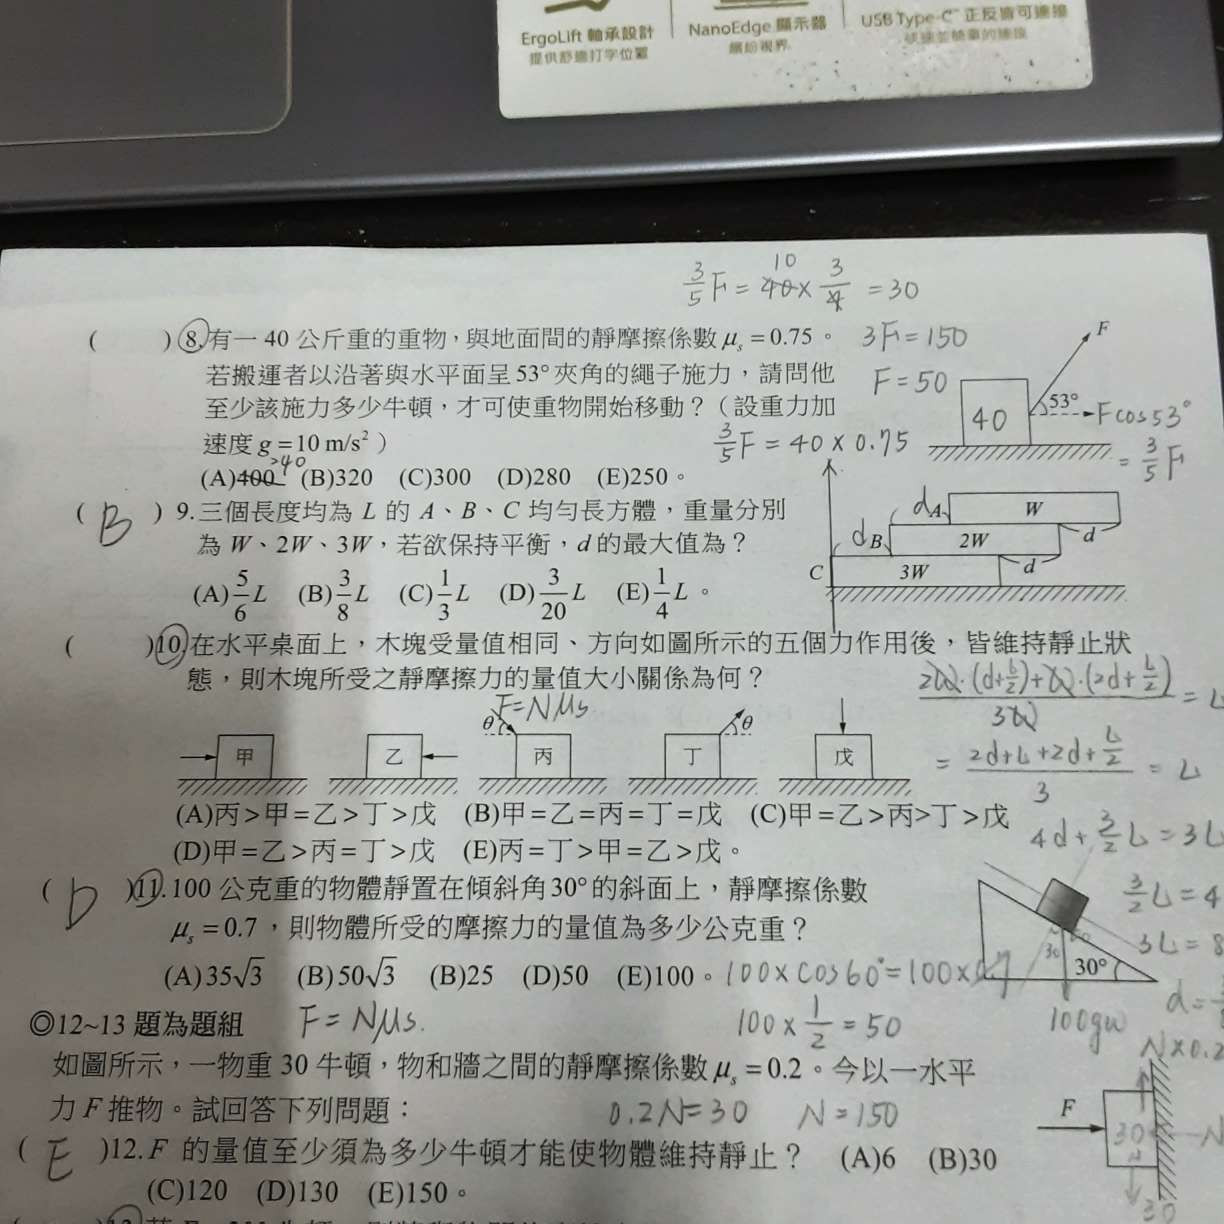 ErgoLift 軸承設計
提供舒適打字位置
NanoEdge 顯示器
繽紛視界
USB Type-C™ 正反皆可連接
快速並簡單的連接
3/5 F = 40 10 × 3/4 = 30
( ) 8.有一 40 公斤重的重物，與地面間的靜摩擦係數 μs = 0.75。
3F=150
若搬運者以沿著與水平面呈53°夾角的繩子施力，請問他
F=50
至少該施力多少牛頓，才可使重物開始移動？（設重力加
速度 g = 10 m/s² ）
3/5 F = 40 × 0.75
(A)400 (B)320 (C)300 (D)280 (E)250。
>40
F
40
53°
Fcos53°
= 3/5 F
( B ) 9.三個長度均為 L 的 A、B、C 均勻長方體，重量分別
為 W、2W、3W，若欲保持平衡，d 的最大值為？
(A) 5/6 L (B) 3/8 L (C) 1/3 L (D) 3/20 L (E) 1/4 L。
d A W
d B 2W d
C 3W d
( )10.在水平桌面上，木塊受量值相同、方向如圖所示的五個力作用後，皆維持靜止狀
態，則木塊所受之靜摩擦力的量值大小關係為何？
F=Nμs
2W·(d+L/2)+W·(2d+L/2) / 3W = L
= 2d+L+2d+L/2 / 3 = L
4d+ 3/2 L = 3L
3/2 L = 4
3L = 8
d=
甲 乙 θ 丙 丁 θ 戊
(A)丙>甲=乙>丁>戊 (B)甲=乙=丙=丁=戊 (C)甲=乙>丙>丁>戊
(D)甲=乙>丙=丁>戊 (E)丙=丁>甲=乙>戊。
( D )11.100 公克重的物體靜置在傾斜角30°的斜面上，靜摩擦係數
μs = 0.7，則物體所受的摩擦力的量值為多少公克重？
(A)35√3 (B)50√3 (C)25 (D)50 (E)100。
100×cos60°=100×0.7
100 × 1/2 = 50
30
30°
100gw
◎12~13 題為題組
F=Nμs.
如圖所示，一物重 30 牛頓，物和牆之間的靜摩擦係數 μs = 0.2。今以一水平
力 F 推物。試回答下列問題：
0.2N=30 N=150
N×0.2
F
30
N
30
( E )12.F 的量值至少須為多少牛頓才能使物體維持靜止？ (A)6 (B)30
(C)120 (D)130 (E)150。